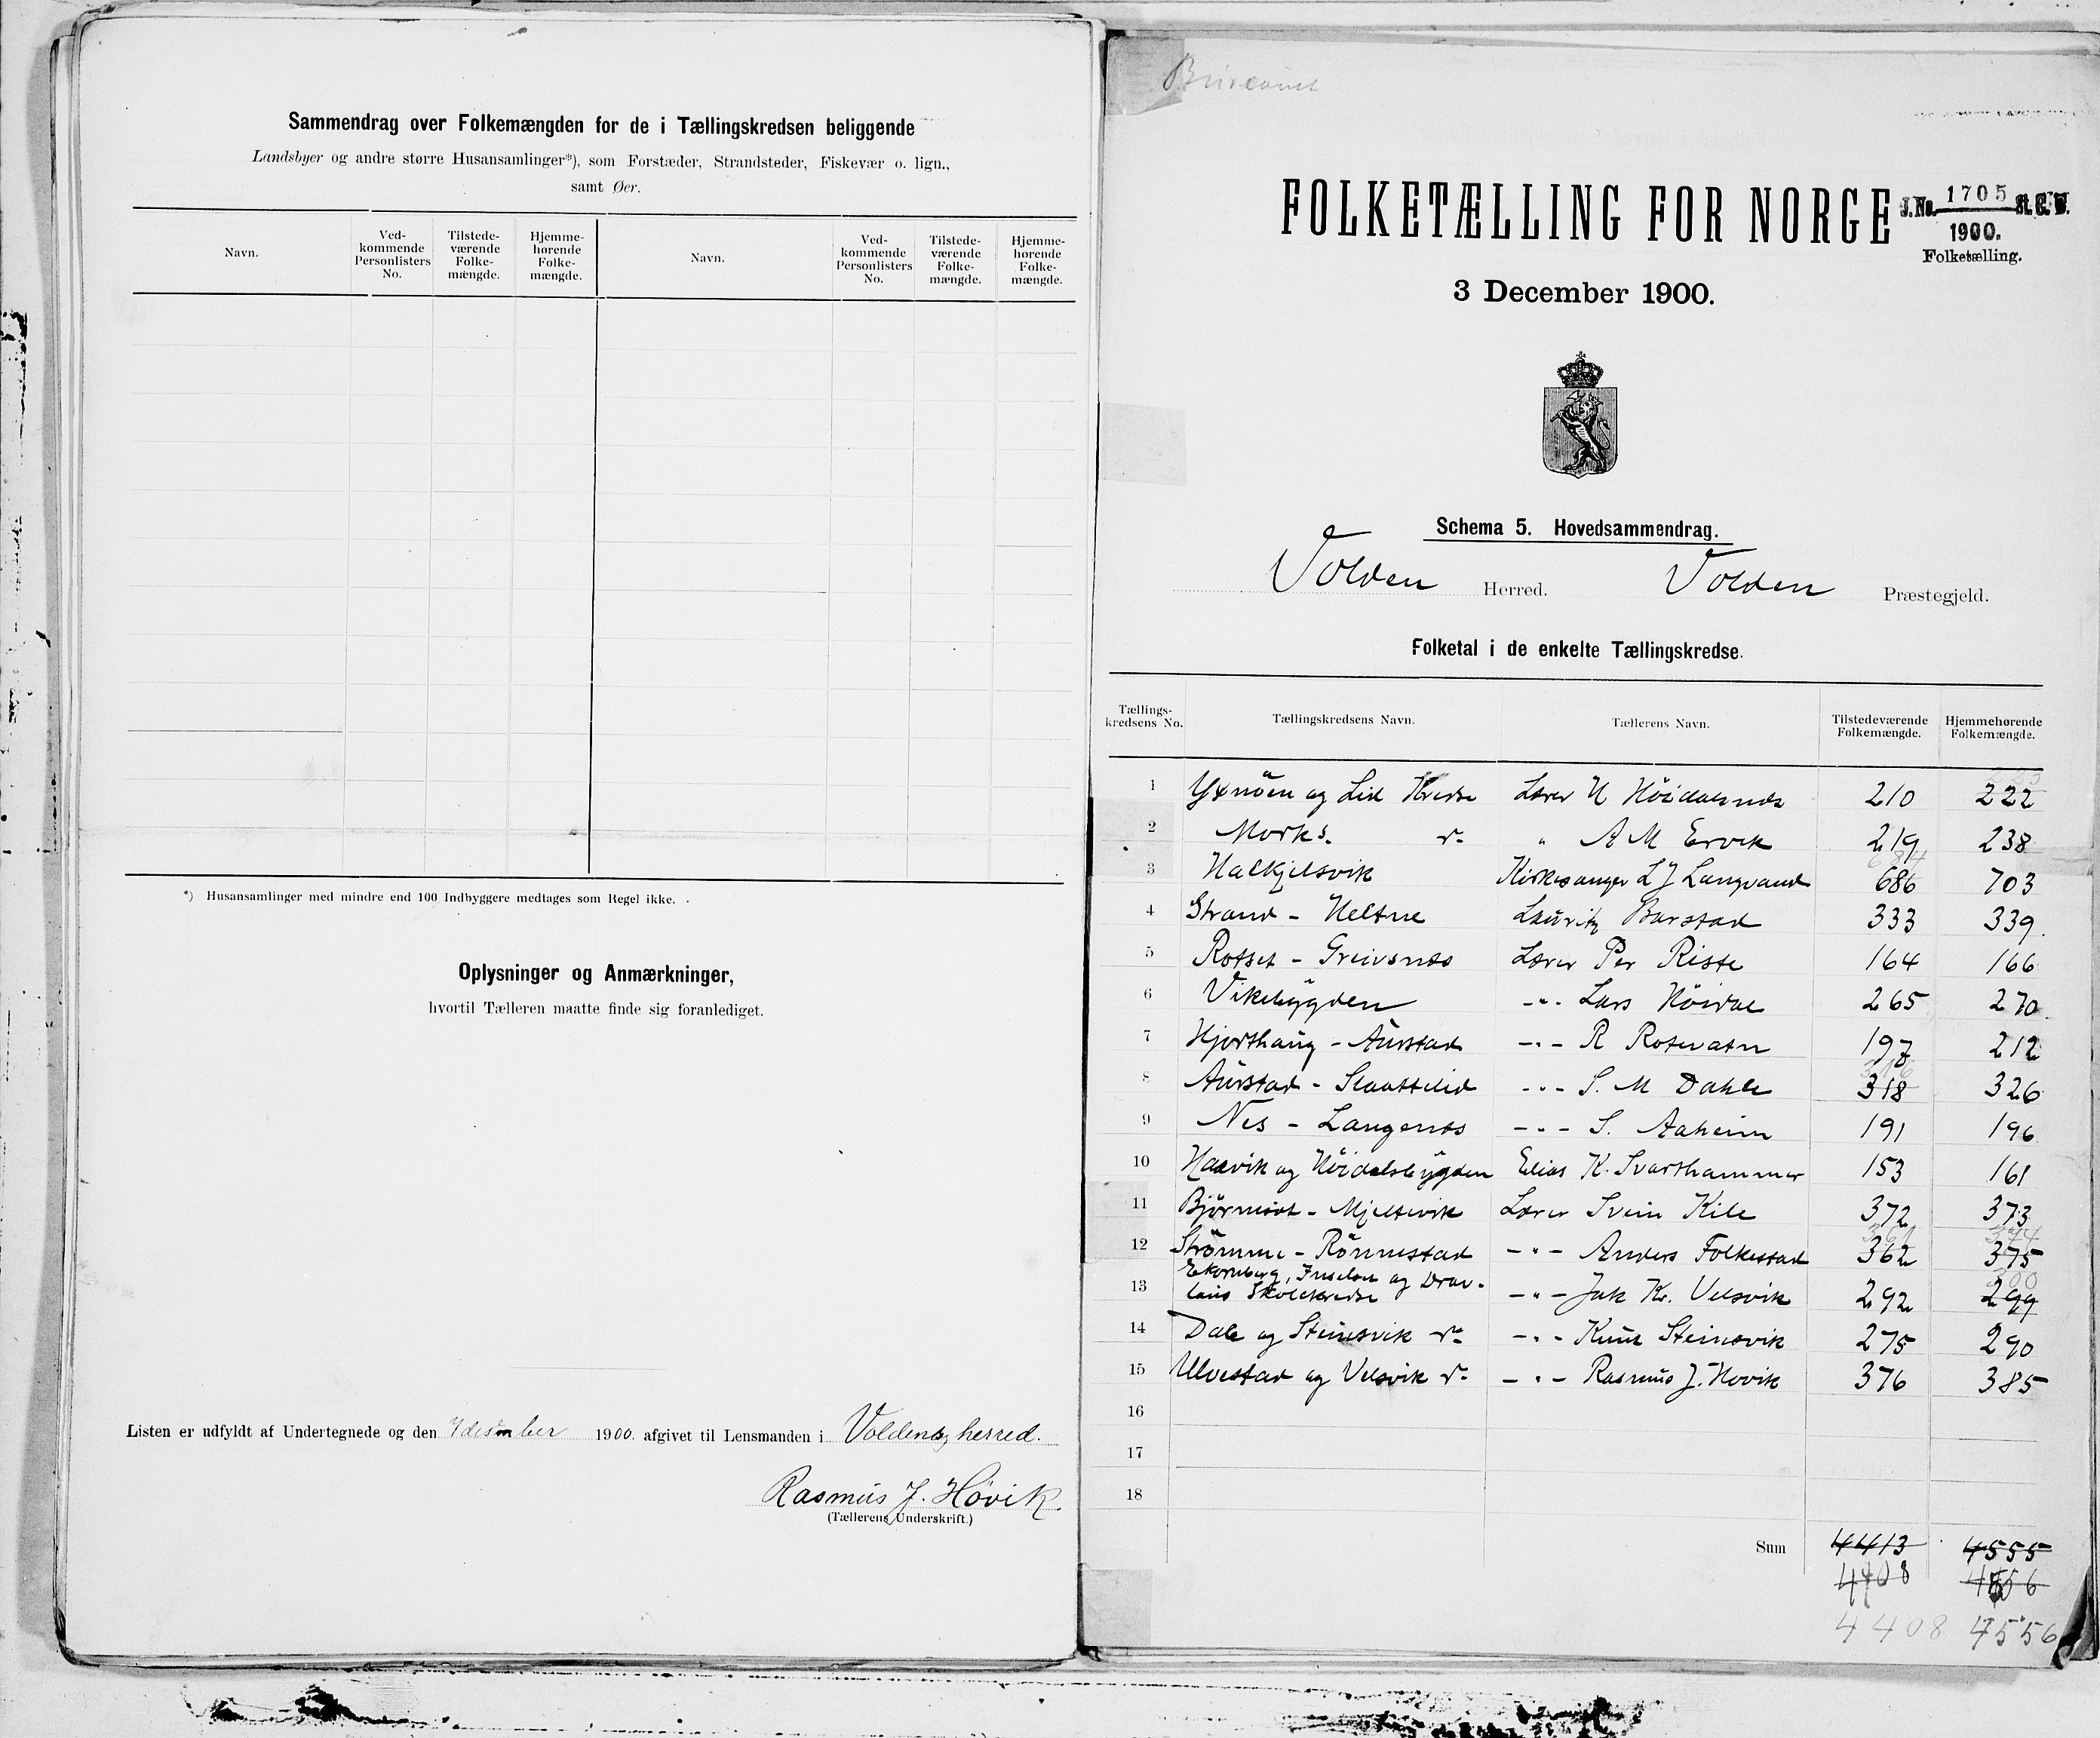 Sammendrag over Folkemængden for de i Tællingskredsen beliggende
Landsbyer og andre større Husansamlinger*), som Forstæder, Strandsteder, Fiskevær o. lign.,
samt Øer.
Navn. Ved-kommende Personlisters No. Tilstede-værende Folke-mængde. Hjemme-hørende Folke-mængde. Navn. Ved-kommende Personlisters No. Tilstede-værende Folke-mængde. Hjemme-hørende Folke-mængde.
*) Husansamlinger med mindre end 100 Indbyggere medtages som Regel ikke.
Oplysninger og Anmærkninger,
hvortil Tælleren maatte finde sig foranlediget.
Listen er udfyldt af Undertegnede og den 7 desember 1900. afgivet til Lensmanden i Voldens herred.
Rasmus J. Høvik.
(Tællerens Underskrift.)
FOLKETÆLLING FOR NORGE
J. No. 1705 St. C. B.
1900.
Folketælling.
3 December 1900.
Schema 5. Hovedsammendrag.
Volden Herred. Volden Præstegjeld.
Folketal i de enkelte Tællingskredse.
Tællings-kredsens No. Tællingskredsens Navn. Tællerens Navn. Tilstedeværende Folkemængde. Hjemmehørende Folkemængde.
1 Yxnöen og Lid Kredse Lærer N Höidalsnes 210 222
2 Morks. d: " A M Ervik 219 238
3 Halkjelsvik Kirkesanger L J Langvand 686 703
4 Strand - Heltne Lauritz Barstad 333 339
5 Rotset - Greivsnæs Lærer Per Riste 164 166
6 Vikebygden -"- Lars Höidal 265 270
7 Hjorthaug - Aurstad -"- R Rotevatn 197 212
8 Aurstad - Slaattelid -"- S. M Dahle 318 326
9 Nes - Langenæs -"- S. Aaheim 191 196
10 Haavik og Höidalsbygden Elias K. Svarthammer 153 161
11 Björneset - Mjeltevik Lærer Svein Kile 372 373
12 Strömme - Rönnestad -"- Anders Folkestad 362 375
13 Ekornberg, Inselset og Drav-
laus Skolekredse -"- Jak Kr. Velsvik 292 299
14 Dale og Steinsvik d: -"- Knut Steinsvik 275 290
15 Ulvestad og Velsvik d: -"- Rasmus J. Hovik 376 385
16
17
18
Sum 4413 4555
4408 4556
4408 4556